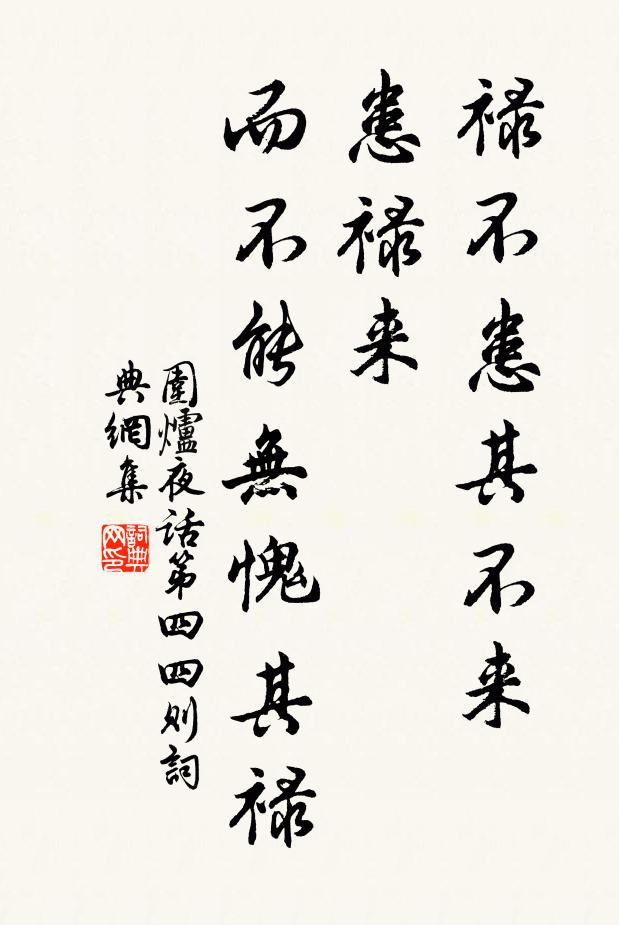 禄不患其不来
患禄来
而不能無愧其禄
圍爐夜话第四四则詞
典網集
詞典
网印